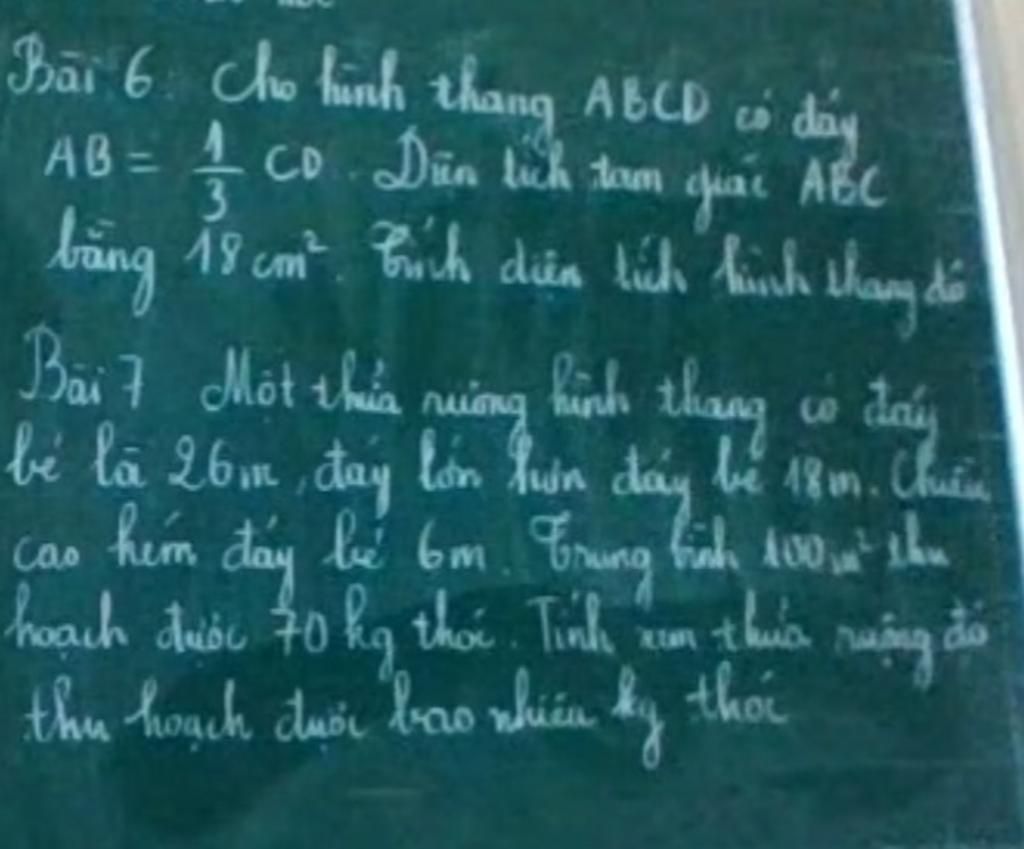 Bài 6. Cho hình thang ABCD có đáy
AB = 1/3 CD. Diện tích tam giác ABC
bằng 18 cm². Tính diện tích hình thang đó
Bài 7 Một thửa ruộng hình thang có đáy
bé là 26m, đáy lớn hơn đáy bé 18m. Chiều
cao kém đáy bé 6m. Trung bình 100m² thu
hoạch được 70 kg thóc. Tính xem thửa ruộng đó
thu hoạch được bao nhiêu kg thóc